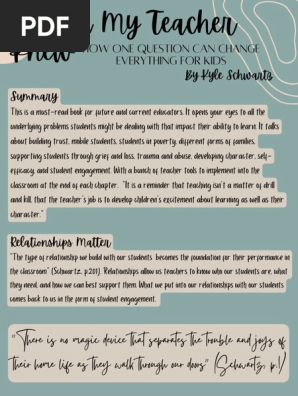 PDF
My Teacher
Knew
HOW ONE QUESTION CAN CHANGE
EVERYTHING FOR KIDS
By Kyle Schwartz
Summary
This is a must-read book for future and current educators. It opens your eyes to all the
underlying problems students might be dealing with that impact their ability to learn. It talks
about building trust, mobile students, students in poverty, different forms of families,
supporting students through grief and loss, trauma and abuse, developing character, self-
efficacy, and student engagement. With a bunch of teacher tools to implement into the
classroom at the end of each chapter. "It is a reminder that teaching isn't a matter of drill
and kill, that the teacher's job is to develop children's excitement about learning as well as their
character."
Relationships Matter
"The type of relationship we build with our students becomes the foundation for their performance in
the classroom" (Schwartz, p.201). Relationships allow us teachers to know who our students are, what
they need, and how we can best support them. What we put into our relationships with our students
comes back to us in the form of student engagement.
"There is no magic device that separates the trouble and joys of
their home life as they walk through our doors" (Schwartz, p.1)